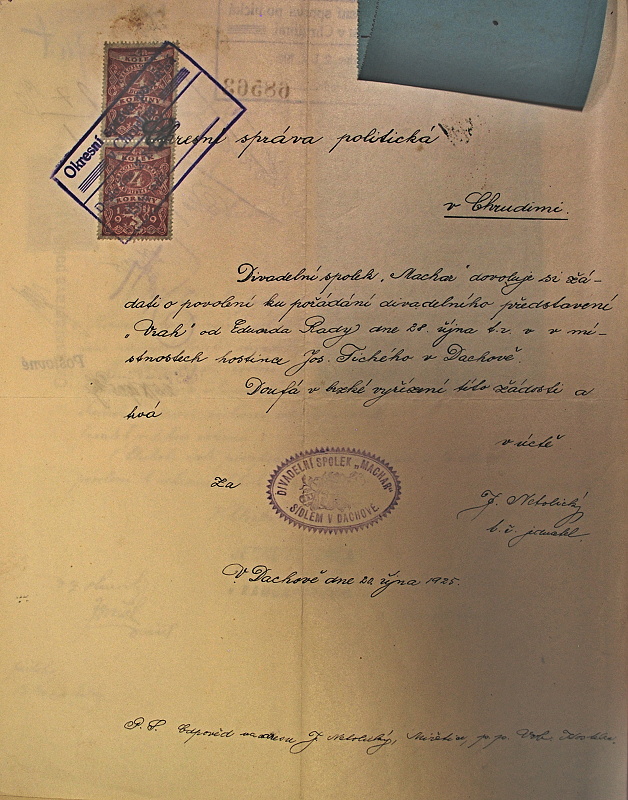 Okresní
Okresní správa politická
v Chrudimi.
Divadelní spolek „Machar" dovoluje si žá-
dati o povolení ku pořádání divadelního představení
„Vrah" od Eduarda Rady dne 28. října t.r. v v mí-
stnostech hostince Jos. Tichého v Dachově.
Doufá v brzké vyřízení této žádosti a
trvá
v úctě
Za
DIVADELNÍ SPOLEK „MACHAR"
SÍDLEM V DACHOVĚ
J. Netolický
t. č. jednatel.
V Dachově dne 20. října 1925.
P. S. Odpověd na adresu J. Netolický, p. p.
KORUNY
4
KORUNY
68562
Poštovné